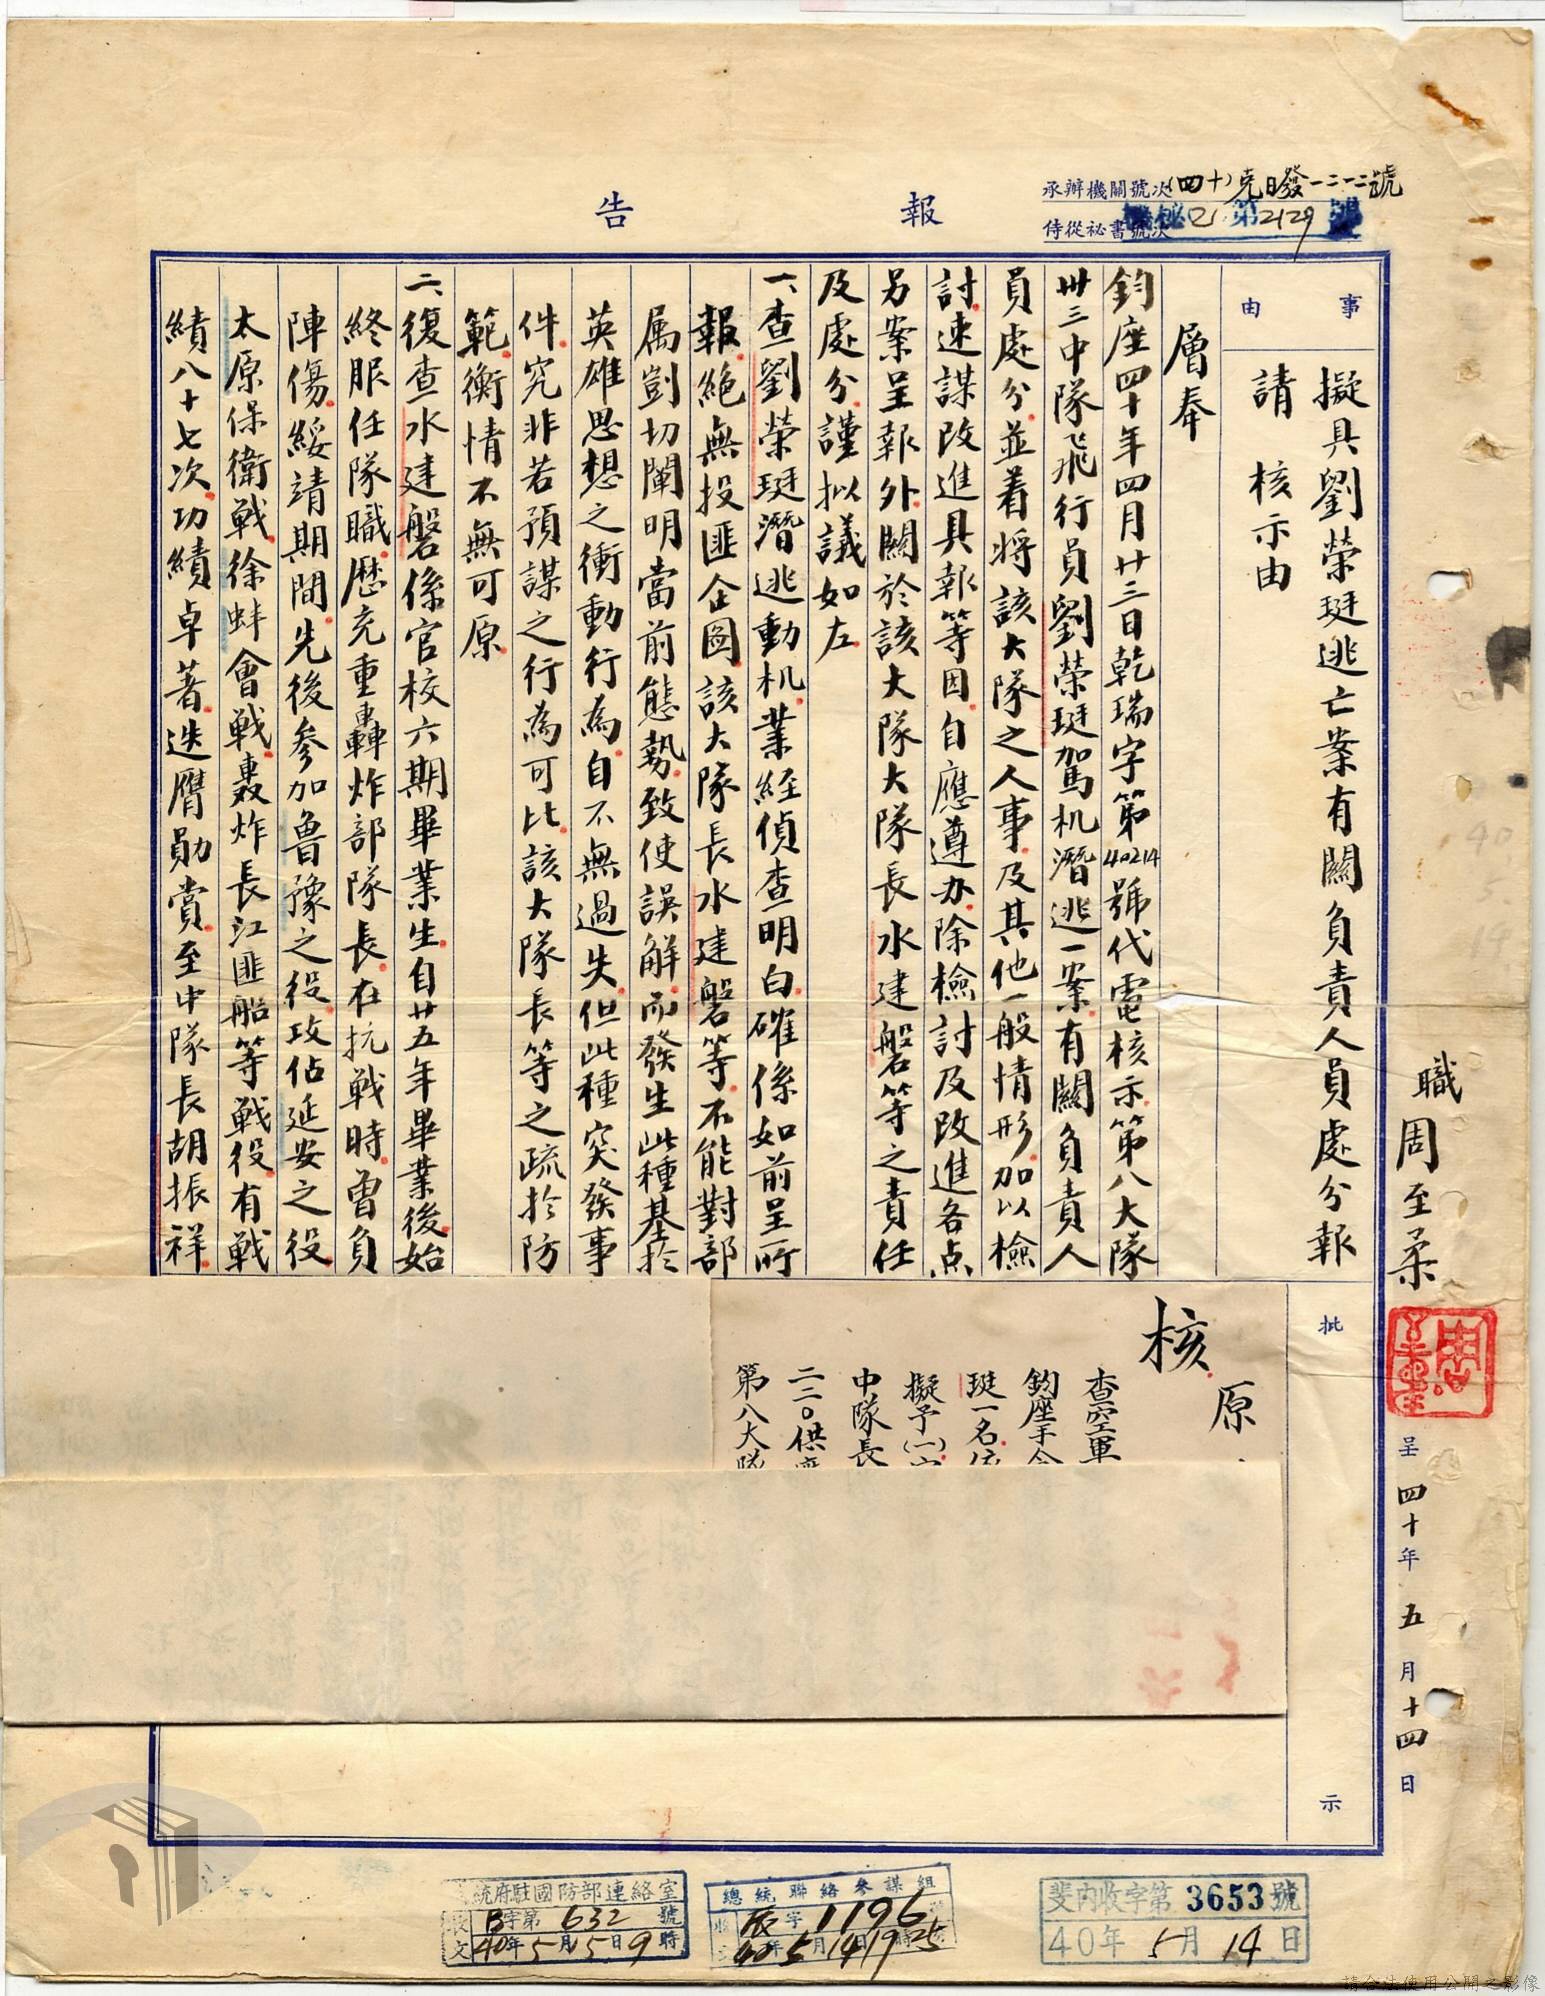 報告
承辦機關號次(四十)克日發一二一二號
侍從祕書號次 機秘 第2129號
事由
擬具劉榮珽逃亡案有關負責人員處分報
請核示由
職周至柔
呈四十年五月十四日
層奉
鈞座四十年四月廿三日乾瑞字第40214號代電核示第八大隊
卅三中隊飛行員劉榮珽駕机潛逃一案有關負責人
員處分並着將該大隊之人事及其他一般情形加以檢
討速謀改進具報等因自應遵办除檢討及改進各点
另案呈報外關於該大隊大隊長水建磐等之責任
及處分謹拟議如左
一、查劉榮珽潛逃動机業經偵查明白確係如前呈所
報絶無投匪企圖該大隊長水建磐等不能對部
属剴切闡明當前態勢致使誤解而發生此種基於
英雄思想之衝動行為自不無過失但此種突發事
件究非若預謀之行為可比該大隊長等之疏於防
範衡情不無可原
二、復查水建磐係官校六期畢業生自廿五年畢業後始
終服任隊職歷充重轟炸部隊長在抗戰時曾負
陣傷綏靖期間先後參加魯豫之役攻佔延安之役
太原保衛戰徐蚌會戰轟炸長江匪船等戰役有戰
績八十七次功績卓著迭膺勛賞至中隊長胡振祥
批示
原
核
查空軍
鈞座手令
珽一名依
擬予(一)
中隊長
二二○供應
第八大隊
斐內收字第3653號
40年5月14日
總統聯絡參謀組
辰字1196
40年5月14日19時25
統府駐國防部連絡室
收文
B字第632號
40年5月15日9時
請合法使用公開之影像